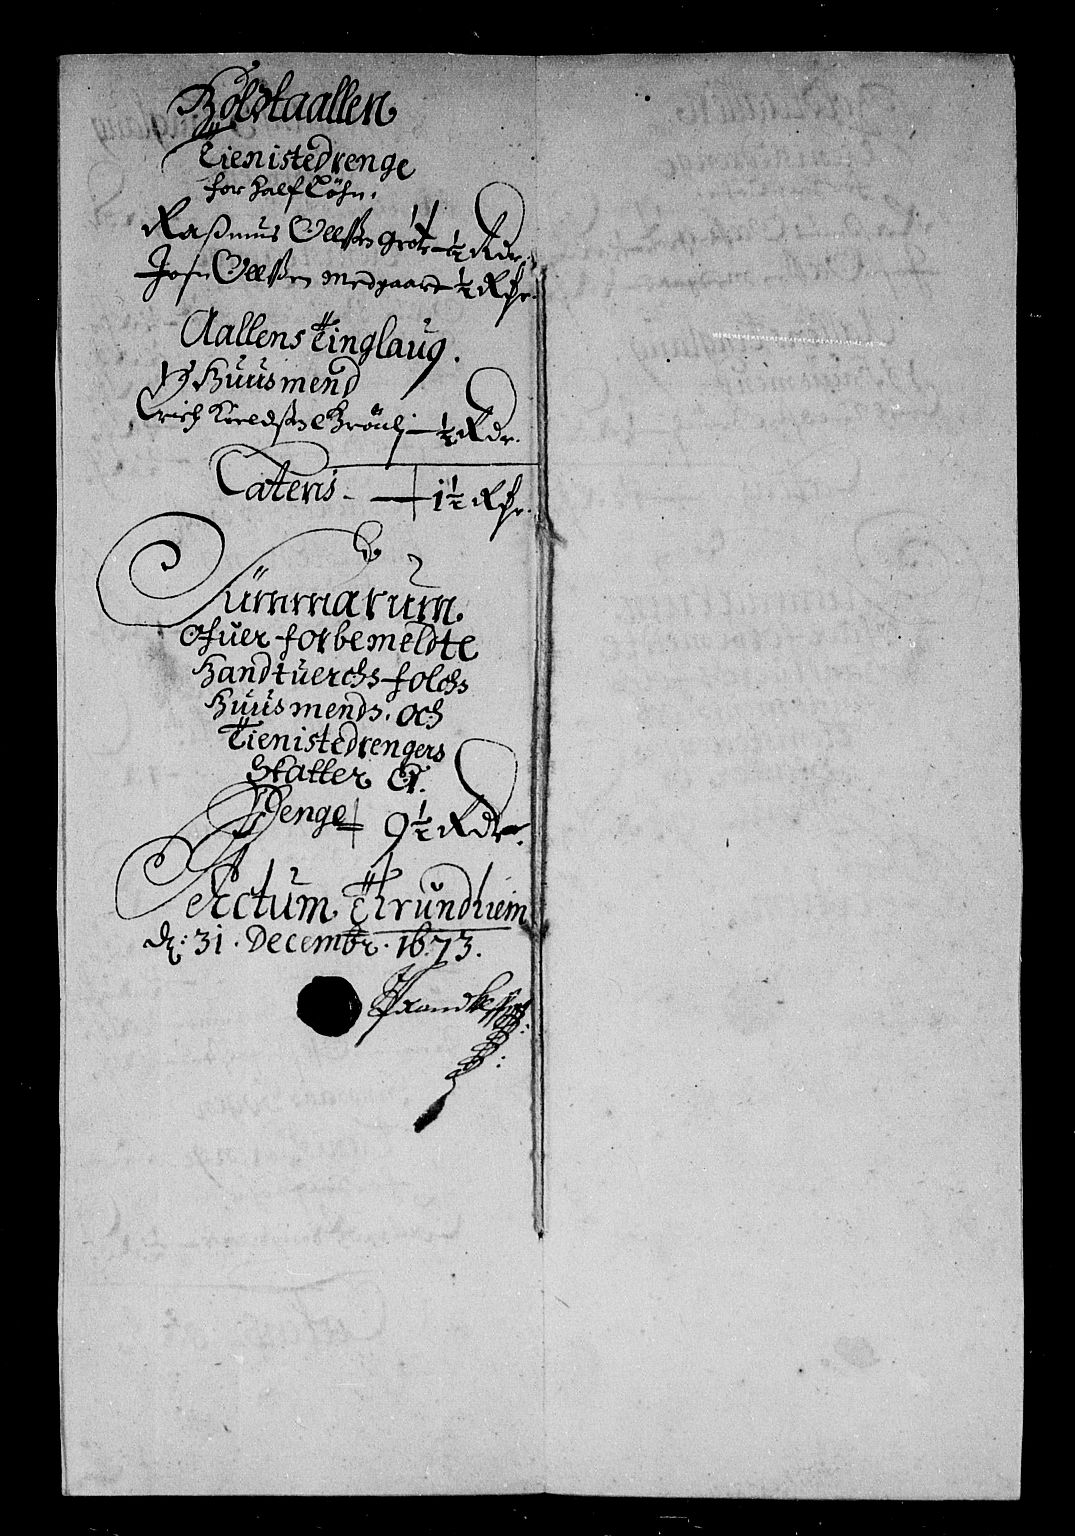 Holdtaallen
Tienistedrenge
for half Löhn.
Rasmus Ollßen gröt ½ Rdr.
John Ollßen medgaard ½ Rdr.
Aallens Tinglaug.
Huusmend
Erich Kieeldßen Bröuli ½ Rdr.
Lateris 1½ Rdr.
Summarum
ofuer forbemeldte
Handtuerchs folchs
Huusmends. och
Tienistedrengers
Skatter Er.
Penge 9½ Rdr.
Actum Thrundhiem
dr: 31. Decembr. 1673.